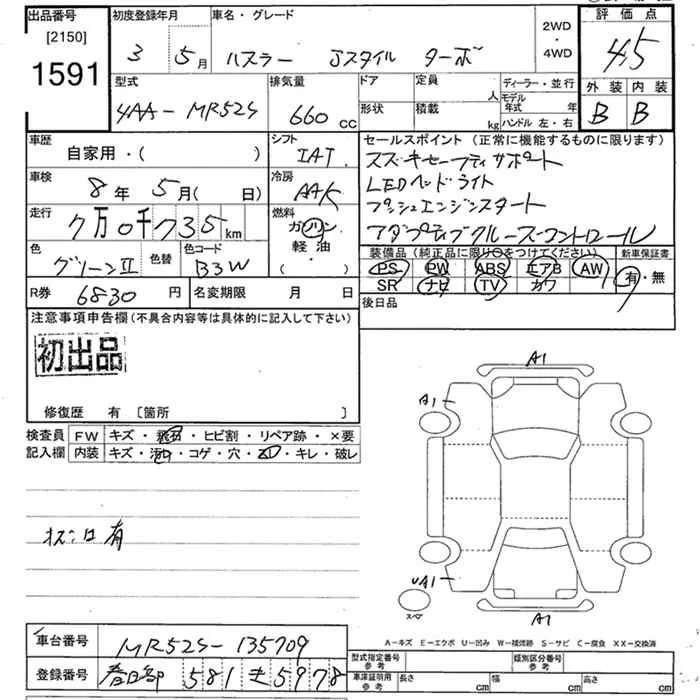 出品番号 [2150] 1591
初度登録年月 3 5月
車名・グレード ハスラー Jスタイル ターボ
2WD・4WD
評価点 4.5
外装 B 内装 B
型式 4AA-MR52S
排気量 660 CC
ドア 形状
定員 人
積載 kg
ディーラー・並行
モデル年式 年
ハンドル 左・右
車歴 自家用・( )
シフト IAT
車検 8年 5月( 日)
冷房 AAC
走行 7万0千735km
燃料 ガソリン 軽油 ・( )
色 グリーンⅡ 色替 色コード B3W
R券 6830円 名変期限 月 日
セールスポイント(正常に機能するものに限ります)
スズキセーフティサポート
LEDヘッドライト
プッシュエンジンスタート
アダプティブクルーズコントロール
装備品(純正品に限り○をつけてください) 新車保証書
PS PW ABS エアB AW 有・無
SR ナビ TV カワ
後日品
注意事項申告欄(不具合内容等は具体的に記入して下さい)
初出品
修復歴 有 [箇所 ]
検査員 FW キズ・飛石・ヒビ割・リペア跡・×要
記入欄 内装 キズ・汚れ・コゲ・穴・・キレ・破レ
有
A1
A1
UA1
スペア
A1
A-キズ E-エクボ U-凹み W-補修跡 S-サビ C-腐食 XX-交換済
車台番号 MR52S-135709
登録番号 春日部 581 5978
型式指定番号 参考 類別区分番号 参考
車庫証明用 参考 長さ cm 幅 cm 高さ cm